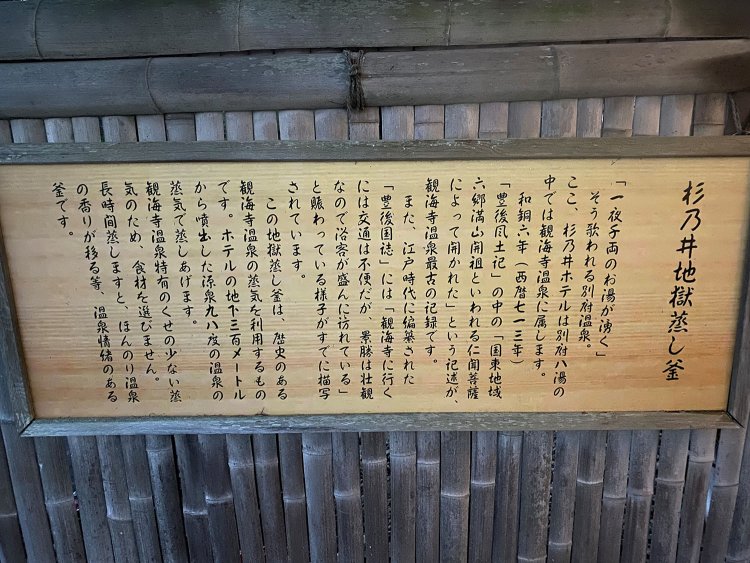 杉乃井地獄蒸し釜
「一夜千両のお湯が湧く」
そう歌われる別府温泉。
ここ、杉乃井ホテルは別府八湯の
中では観海寺温泉に属します。
和銅六年（西暦七一三年）
「豊後風土記」の中の「国東地域
六郷満山開祖といわれる仁聞菩薩
によって開かれた」という記述が、
観海寺温泉最古の記録です。
また、江戸時代に編纂された
「豊後国誌」には「観海寺に行く
には交通は不便だが、景勝は壮観
なので浴客が盛んに訪れている」
と賑わっている様子がすでに描写
されています。
この地獄蒸し釜は、歴史のある
観海寺温泉の蒸気を利用するもの
です。ホテルの地下三百メートル
から噴出した源泉九八度の温泉の
蒸気で蒸しあげます。
観海寺温泉特有のくせの少ない蒸
気のため、食材を選びません。
長時間蒸しますと、ほんのり温泉
の香りが移る等、温泉情緒のある
釜です。